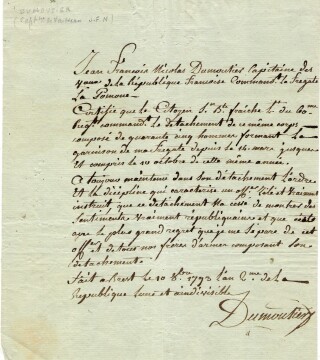 Jean François Nicolas Dumoutier Capitaine des
Vaux de la République Françoise Commandt la fregate
La Pomone
Certifie que le Citoyen
commandt le détachement de ce même corps
composé de quarante cinq hommes formant la
garnison de ma fregate depuis le 14 mars jusques
et compris le 10 octobre de cette même année
a toujours maintenu dans son détachement l'ordre
et la discipline qui caractérise un offer zélé et vraiment
instruit, que ce détachement n'a cessé de montrer des
sentiments vraiment républiquains et que c'est
avec le plus grand regret que je me sépare de cet
offer et de tous nos frères d'armes composant son
détachement.
fait a Brest le 10 8bre 1793 l'an 2me de la
République une et indivisible
Dumoutier